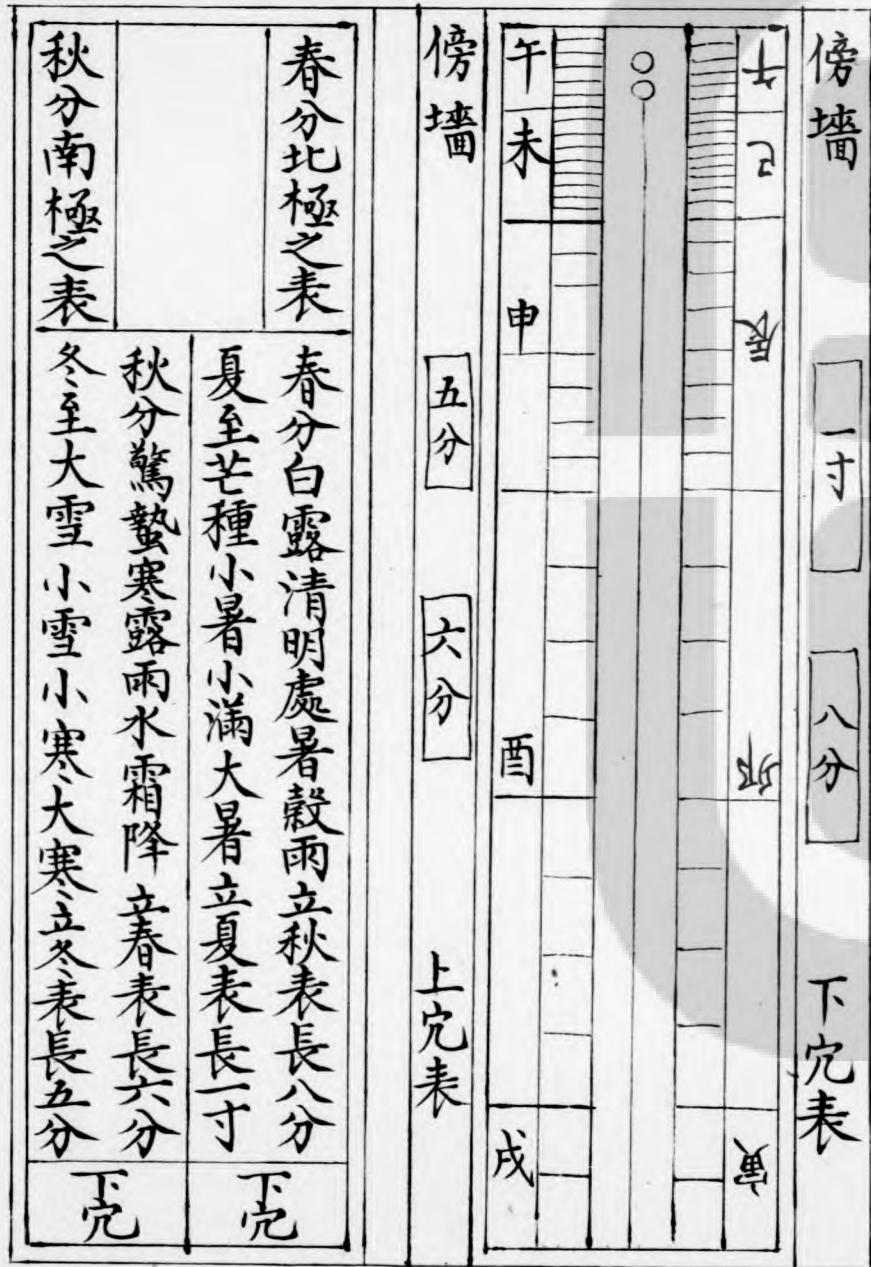 傍墻 一寸 八分 下宂表
午 巳 辰 卯 寅
午 未 申 酉 戌
傍墻 五分 六分 上宂表
春分北極之表
秋分南極之表
春分白露清明處暑穀雨立秋表長八分
夏至芒種小暑小滿大暑立夏表長一寸
秋分驚蟄寒露雨水霜降立春表長六分
冬至大雪小雪小寒大寒立冬表長五分
下宂
下宂